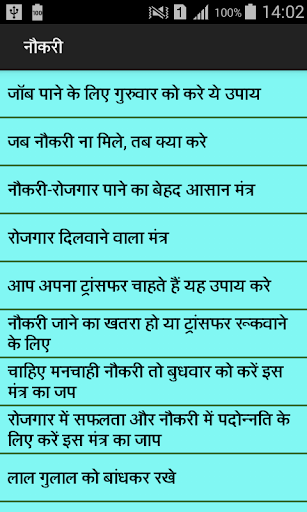 100 1 100% 14:02
नौकरी
जॉब पाने के लिए गुरुवार को करे ये उपाय
जब नौकरी ना मिले, तब क्या करे
नौकरी-रोजगार पाने का बेहद आसान मंत्र
रोजगार दिलवाने वाला मंत्र
आप अपना ट्रांसफर चाहते हैं यह उपाय करे
नौकरी जाने का खतरा हो या ट्रांसफर रूकवाने
के लिए
चाहिए मनचाही नौकरी तो बुधवार को करें इस
मंत्र का जप
रोजगार में सफलता और नौकरी में पदोन्नति के
लिए करें इस मंत्र का जाप
लाल गुलाल को बांधकर रखे